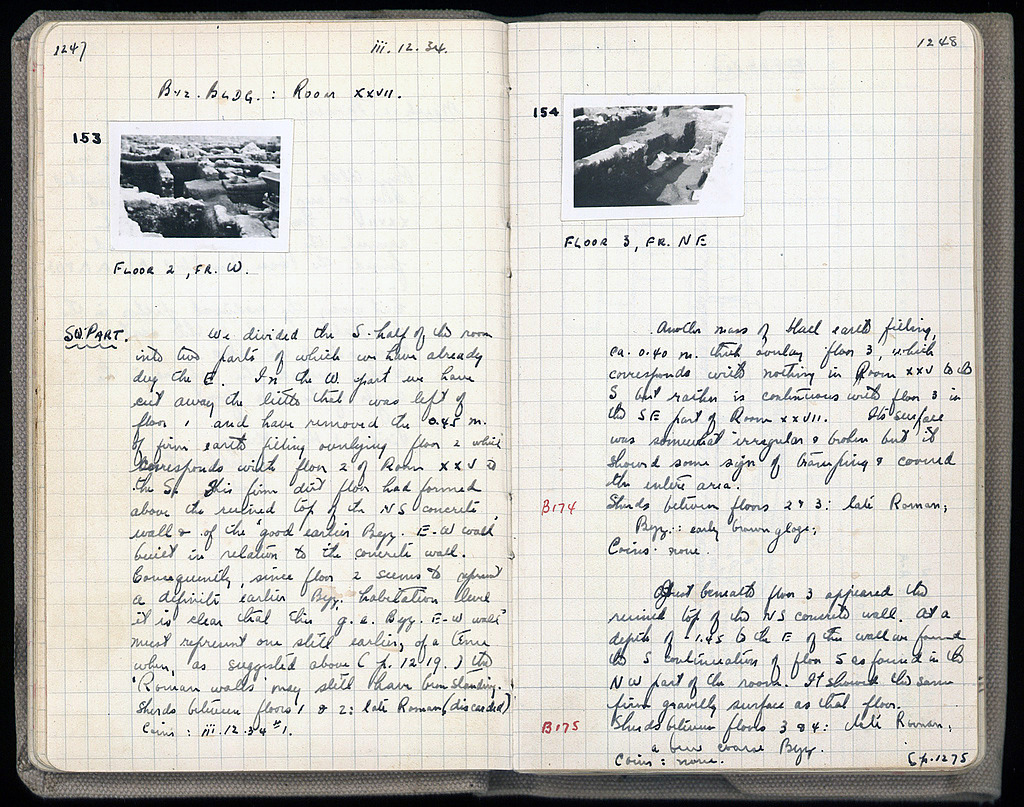 1247
iii.12.34.
Byz. Bldg. : Room XXVII.
153
Floor 2, fr. W.
SW Part.
We divided the S. half of the room
into two parts of which we have already
dug the E. In the W. part we have
cut away the little that was left of
floor 1 and have removed the 0.45 m.
of firm earth filling overlying floor 2 which
corresponds with floor 2 of Room XXV to
the S. This firm dirt floor had formed
above the ruined top of the NS concrete
wall & of the "good earlier Byz. E-W wall"
built in relation to the concrete wall.
Consequently, since floor 2 seems to represent
a definite earlier Byz. habitation level
it is clear that this "g.e. Byz. E-W wall"
must represent one still earlier, of a time
when, as suggested above (p. 1219.) the
'Roman walls' may still have been standing.
Sherds between floors 1 & 2: late Roman (discarded)
Coins : iii.12.34 #1.
1248
154
Floor 3, fr. NE
Another mass of black earth filling,
ca. 0.40 m. thick overlay floor 3, which
corresponds with nothing in Room XXV to the
S but rather is continuous with floor 3 in
the SE part of Room XXVII. Its surface
was somewhat irregular & broken but it
showed some sign of tramping & covered
the entire area.
B174
Sherds between floors 2 & 3: late Roman;
Byz.: early brown glaze;
Coins: none.
Just beneath floor 3 appeared the
ruined top of the NS concrete wall. At a
depth of -1.45 to the E of this wall we found
the S continuation of floor 5 as found in the
NW part of the room. It showed the same
firm gravelly surface as that floor.
B175
Sherds between floors 3 & 4: late Roman,
a few coarse Byz.
Coins: none.
p. 1275